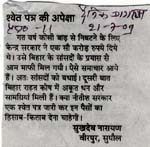 श्वेत पत्र की अपेक्षा
दैनिक जागरण
पृष्ठ-11 21-7-09
गत वर्ष कोसी बाढ़ से निबटने के लिए
केन्द्र सरकार ने एक सौ करोड़ रुपये दिये
थे। उसे बिहार के सांसदों के प्रयास से
आप माफी मिल गयी। ऐसे समाचार आये
हैं। अतः सांसदों को बधाई। दूसरी बात
बिहार राहत कोष में अकूत धन और
सामग्रियां मिली हैं। क्या नीतीश सरकार
एक श्वेत पत्र जारी कर इन पैसों का
हिसाब-किताब देना चाहेगी।
सुखदेव नारायण
वीरपुर, सुपौल